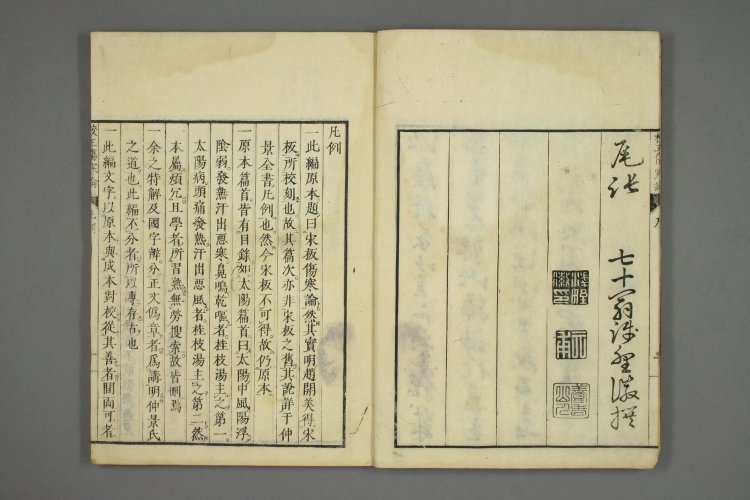 尾張
七十翁浅野徽撰
凡例
一此編原本題曰宋板傷寒論然其實明趙開美得宋
板所校刻也故其篇次亦非宋板之舊其說詳于仲
景全書凡例也然今宋板不可得故仍原本
一原本篇首皆有目錄如太陽篇首曰太陽中風陽浮
陰弱發熱汗出惡寒鼻鳴乾嘔者桂枝湯主之第一
太陽病頭痛發熱汗出惡風者桂枝湯主之第二然
本屬煩冗且學者所習熟無勞搜索故皆刪焉
一余之特解及國字辨分正文爲章者爲講明仲景氏
之道也此編不分者所以專存古也
一此編文字以原本與成本對校從其善者間兩可者
校正傷寒論
凡例